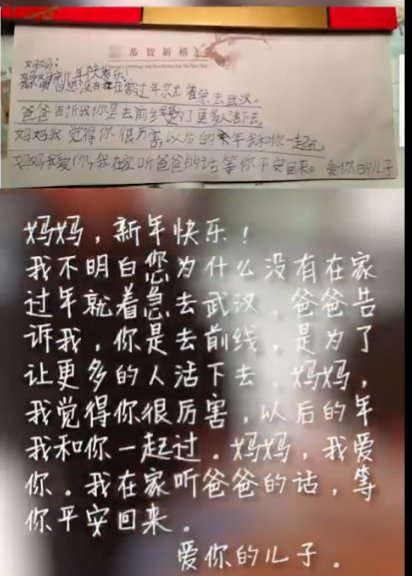 恭贺新禧
妈妈:
年快乐!
没有在家过年就着急去武汉。
爸爸告诉我你是去前线是为了更多人活下去
妈妈我觉得你很厉害以后的年我和你一起过。
妈妈我爱你,我在家听爸爸的话等你平安回来。爱你的儿子
妈妈，新年快乐！
我不明白您为什么没有在家
过年就着急去武汉，爸爸告
诉我，你是去前线，是为了
让更多的人活下去，妈妈，
我觉得你很厉害，以后的年
我和你一起过。妈妈，我爱
你。我在家听爸爸的话，等
你平安回来。
爱你的儿子。